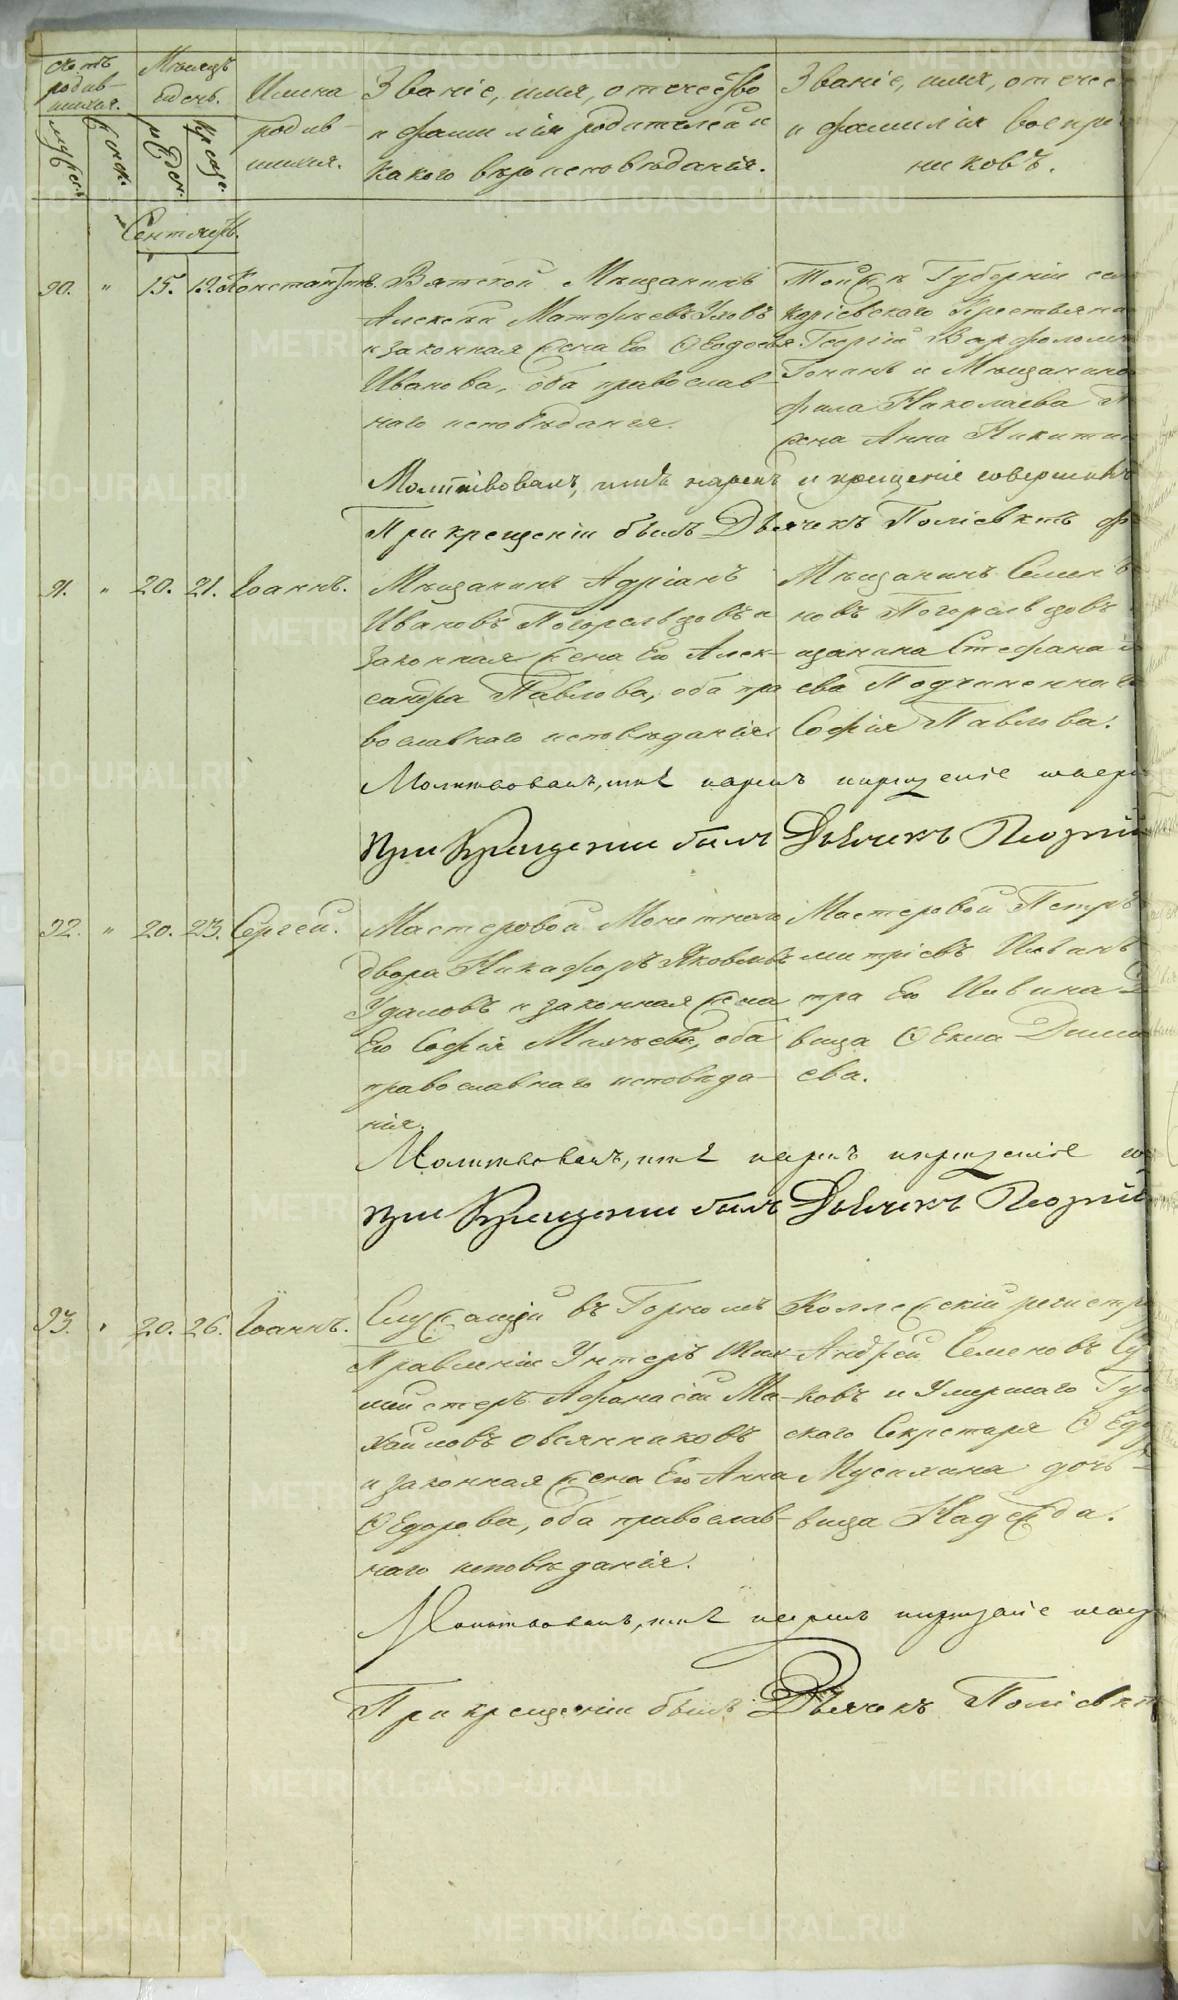 Счетъ родив-шихся.
Мѣсяцъ и день.
Имена родив-шихся.
Званіе, имя, отчество
и фамилія родителей и
какого вѣроисповѣданія.
Званіе, имя, отчес
и фамилія воспри
никовъ.
Мужеск.
Женск.
Рожден.
Креще.
Сентябрь.
90. " 15. 19. Константинъ.
Вятской Мѣщанинъ
Алексѣй Матфѣевъ
и законная жена его Ѳеодосья
Иванова, оба православ-
наго исповѣданія.
Губерніи
Крестьянин
Георгій Варфоломе
и Мѣщанин
Николаева
жена Анна Никитин
Молитвовалъ, имя нарекъ и крещеніе совершилъ
При крещеніи былъ Дьячекъ Поліевктъ
91. " 20. 21. Іоаннъ.
Мѣщанинъ Адріанъ
Ивановъ Погорельцовъ и
законная жена его Алек-
сандра Павлова, оба пра
вославнаго исповѣданія.
Мѣщанинъ Семенъ
новъ Погорельцовъ
щанина Стефана
ева
Софія Павлова.
Молитвовалъ, имя нарекъ и крещеніе совер
При Крещеніи былъ Дьячекъ
92. " 20. 23. Сергей.
Мастеровой Монетнаго
двора Никифоръ Яковлевъ
Удаловъ и законная жена
Его Софія, оба
православнаго исповѣда-
нія.
Мастеровой Петръ
митріевъ
вица Ѳекла Дими
ева.
Молитвовалъ, имя нарекъ и крещеніе со
При Крещеніи былъ Дьячекъ
93. " 20. 26. Іоаннъ.
Служащій въ Горномъ
Правленіи Унтеръ Ших-
мейстеръ Афанасій Ми-
хайловъ Овсянниковъ
и законная жена Его Анна
Ѳедорова, оба православ-
наго исповѣданія.
Коллежскій регистра
Андрей Семеновъ Су
ковъ и Умершаго Губ
скаго Секретаря Ѳедо
Мусихина дочь
вица Надежда.
Молитвовалъ, имя нарекъ и крещеніе совер
При крещеніи былъ Дьячекъ Поліевктъ
METRIKI.GASO-URAL.RU